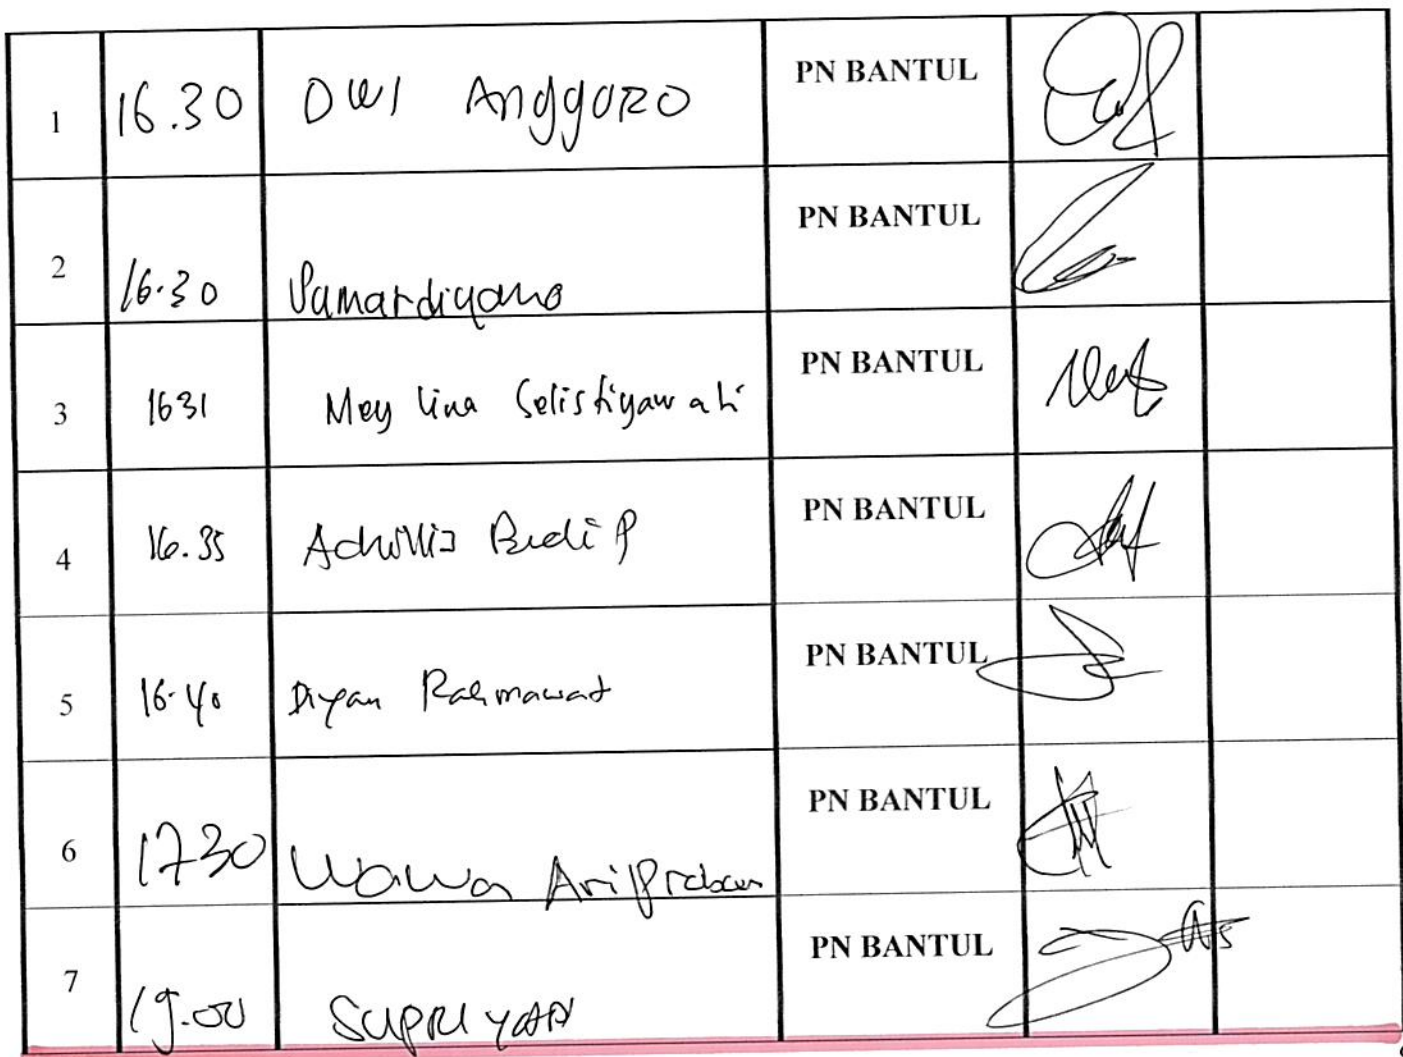 1 16.30 DWI Anggoro PN BANTUL
2 16.30 Sumardiyono PN BANTUL
3 1631 Mey Lina Selistiyawati PN BANTUL
4 16.35 Budi P PN BANTUL
5 16.40 Diyan Rahmawat PN BANTUL
6 1730 Wawa PN BANTUL
7 19.00 PN BANTUL